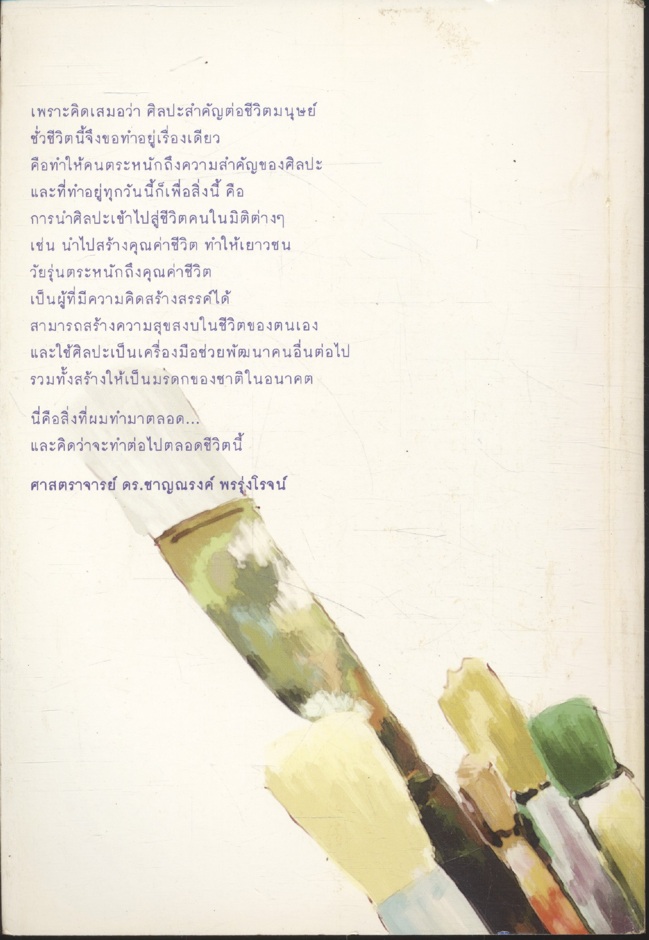 เพราะคิดเสมอว่า ศิลปะสำคัญต่อชีวิตมนุษย์
ชั่วชีวิตนี้จึงขอทำอยู่เรื่องเดียว
คือทำให้คนตระหนักถึงความสำคัญของศิลปะ
และที่ทำอยู่ทุกวันนี้ก็เพื่อสิ่งนี้ คือ
การนำศิลปะเข้าไปสู่ชีวิตคนในมิติต่างๆ
เช่น นำไปสร้างคุณค่าชีวิต ทำให้เยาวชน
วัยรุ่นตระหนักถึงคุณค่าชีวิต
เป็นผู้ที่มีความคิดสร้างสรรค์ได้
สามารถสร้างความสุขสงบในชีวิตของตนเอง
และใช้ศิลปะเป็นเครื่องมือช่วยพัฒนาคนอื่นต่อไป
รวมทั้งสร้างให้เป็นมรดกของชาติในอนาคต
นี่คือสิ่งที่ผมทำมาตลอด...
และคิดว่าจะทำต่อไปตลอดชีวิตนี้
ศาสตราจารย์ ดร.ชาญณรงค์ พรรุ่งโรจน์